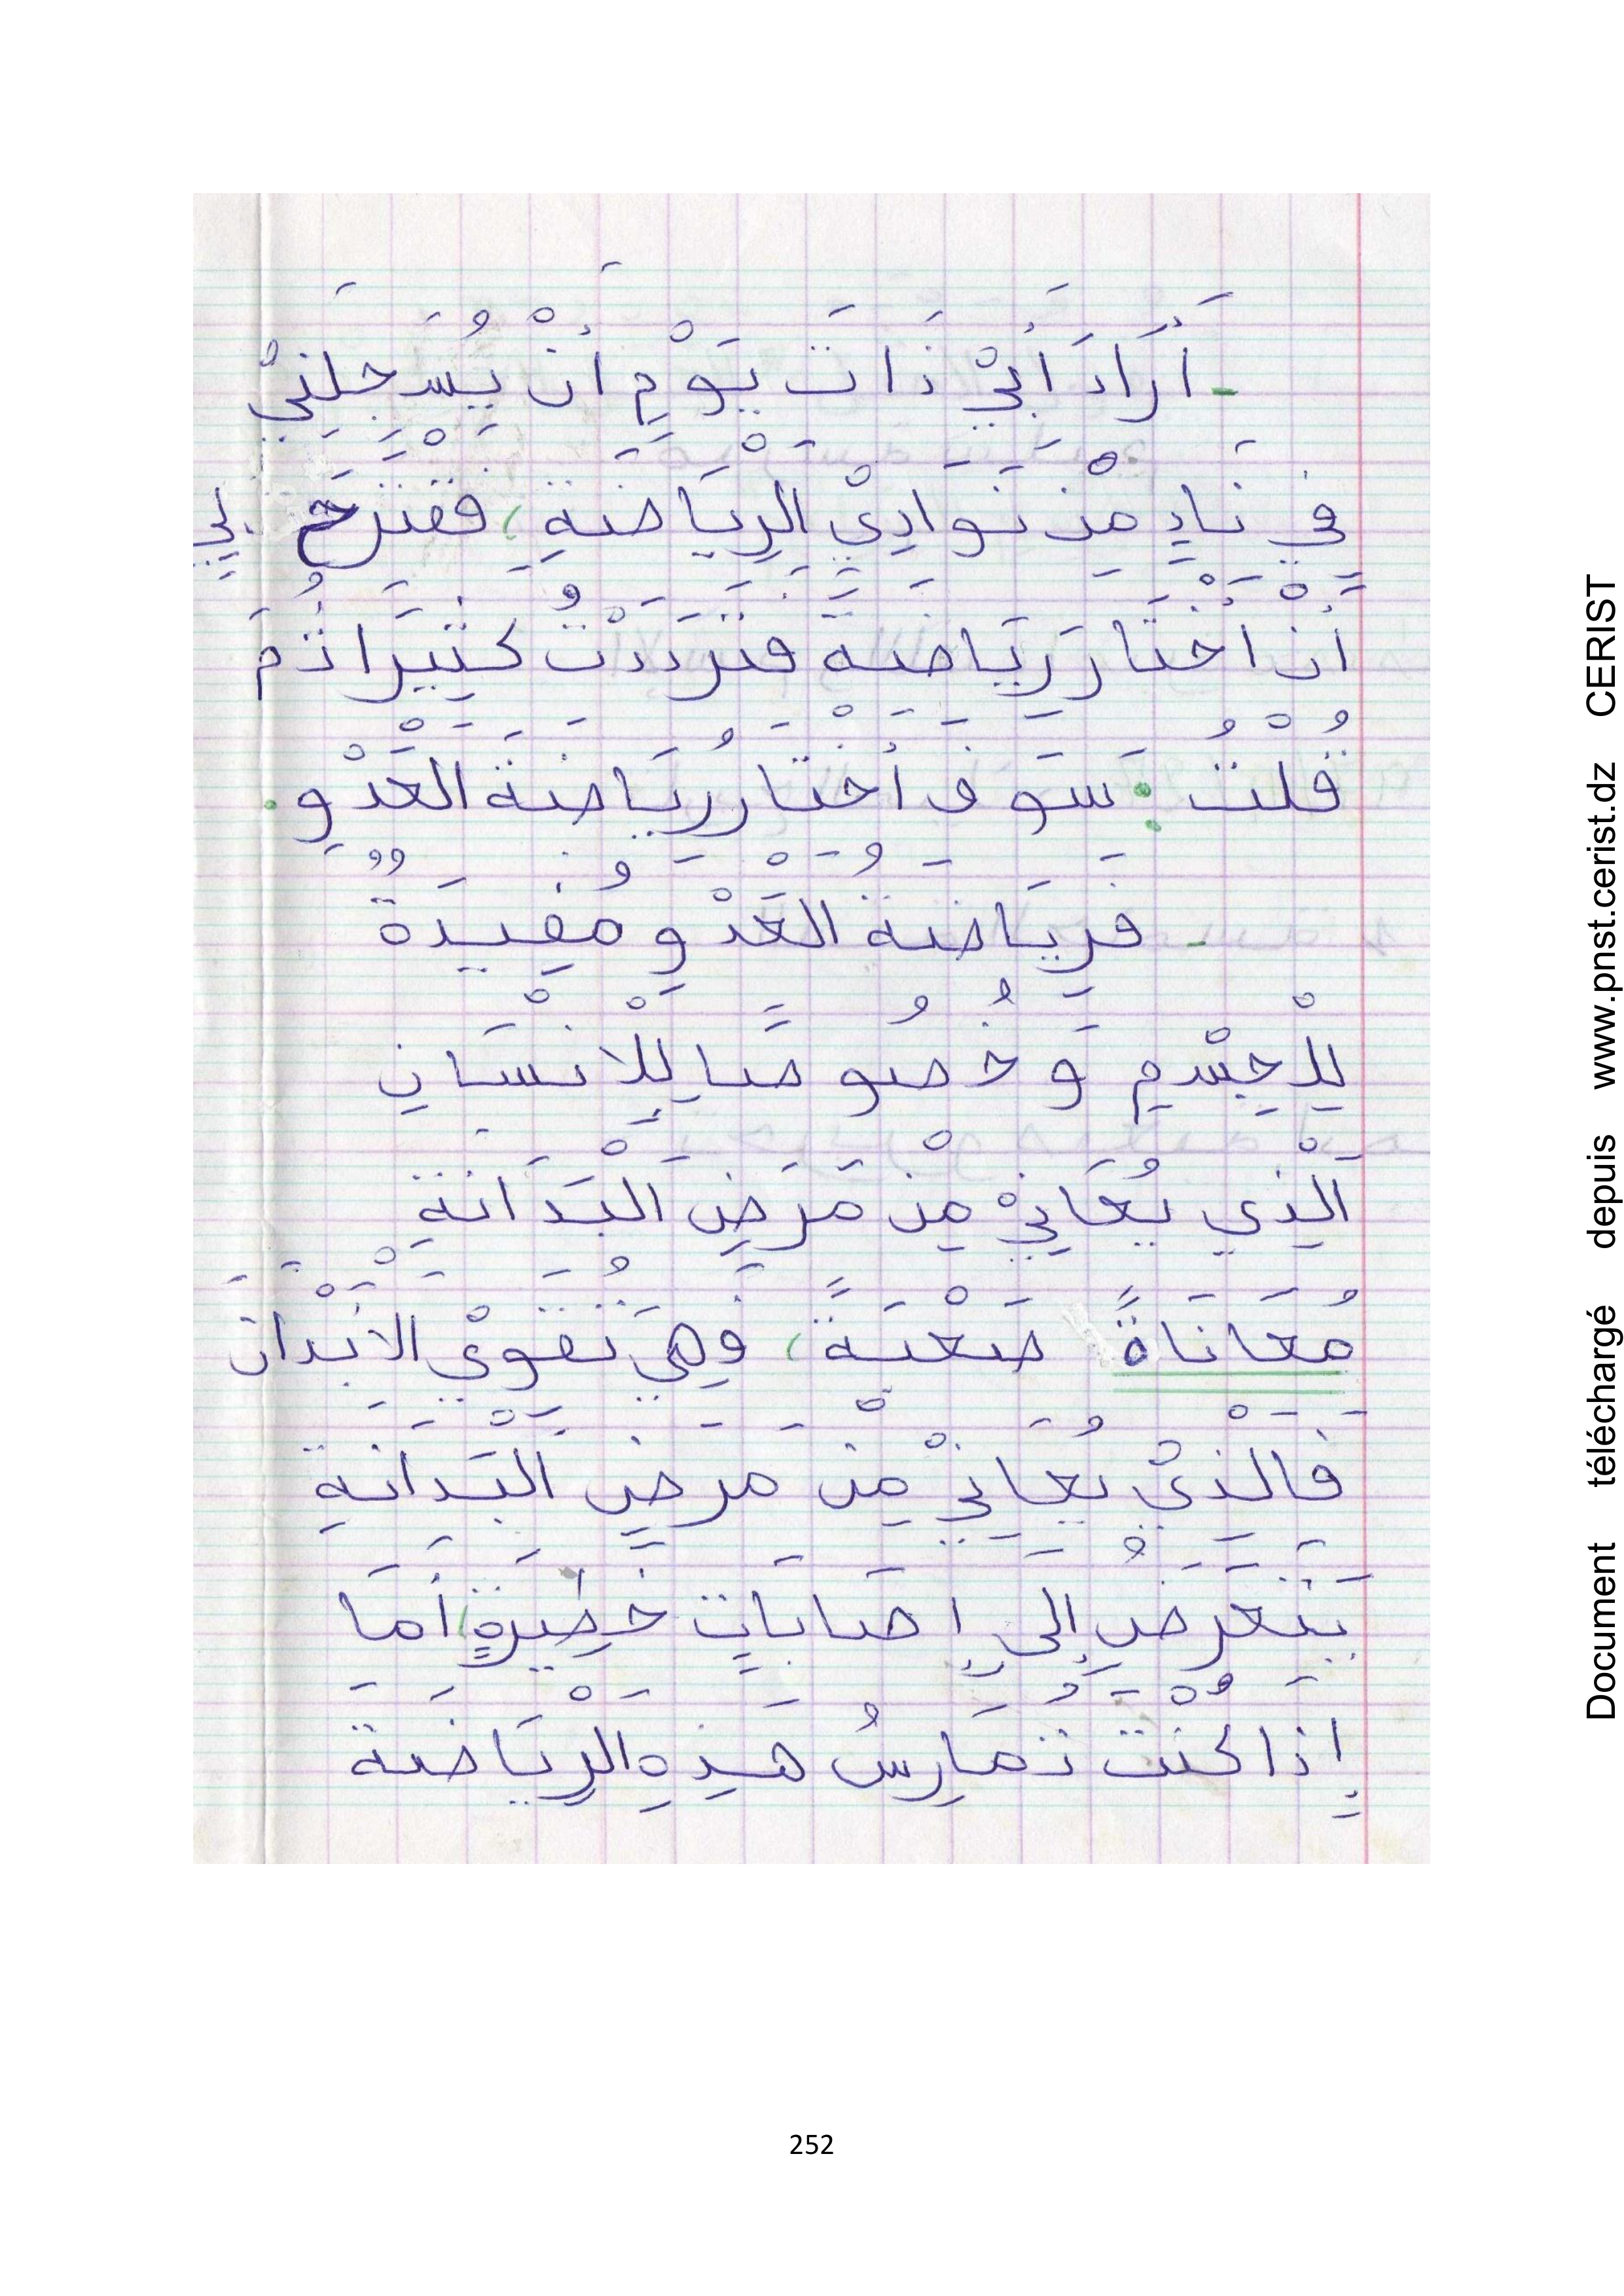 - أَرَادَ أَبِيْ ذَاتَ يَوْمٍ أَنْ يُسَجِلَنِيْ
فِي نَادٍ مِنْ نَوَادِيْ الرِيَاضَةِ، فقترح لِي
أَنْ أَخْتَار رِيَاضَة فتَرَدَدْتُ كَثِيرَا ثُمَ
قُلْتُ: سَوفَ أَخْتَارُ رِيَاضَةَ العَدْوِ.
- فَرِيَاضَةُ العَدْوِ مُفِيدَةٌ
لِلْجِسْمِ وَخُصُوصًا لِلْانْسَانِ
الَذِي يُعَانِيْ مِنْ مَرَضِ الْبَدَانَةِ
مُعَانَاةً صَعْبَةً، فَهِيَ تُقَوِيْ الأَبْدَانَ
فَالْذِيْ يُعَانِيْ مِنْ مَرَضِ الْبَدَانَةِ
يَتَعَرَضُ إِلَى إِصَابَاتٍ خَطِيرَةٍ، أَمَا
إِذَا كُنْتَ تُمَارِسُ هَذِهِ الرِيَاضَة
252
Document téléchargé depuis www.pnst.cerist.dz CERIST